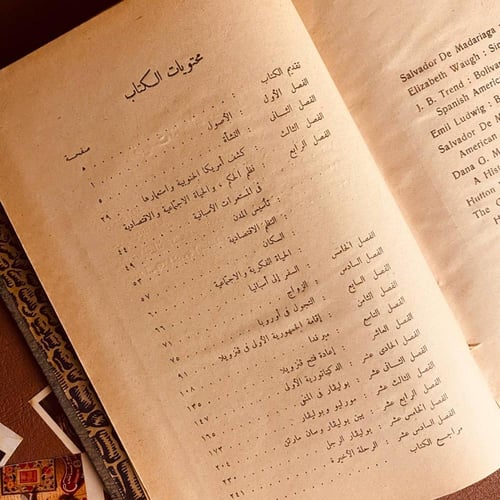 محتويات الكتاب
صفحة
تقديم الكتاب
الفصل الأول : الأصول ١
الفصل الثانى : النشأة ٥
الفصل الثالث : كشف أمريكا الجنوبية واستعمارها ٢٩
الفصل الرابع : نظم الحكم ، والحياة الاجتماعية والاقتصادية
فى المستعمرات الأسبانية ٤٤
تأسيس المدن ٤٩
: النظم الاقتصادية ٥٣
: السكان ٥٧
: الحياة الفكرية والاجتماعية ٦٠
الفصل الخامس : السفر إلى أسبانيا ٦٦
الفصل السادس : الزواج ٧١
الفصل السابع : التجول فى أوروبا ٧٥
الفصل الثامن : إقامة الجمهورية الأولى فى فنزويلا ٩١
الفصل التاسع : ميرندا ١٠٨
الفصل العاشر : إعادة فتح فنزويلا ١٣٥
الفصل الحادى عشر : الدكتاتورية الأولى ١٤٧
الفصل الثانى عشر : بوليفار فى المنفى ١٦٥
الفصل الثالث عشر : موريليو وبوليفار ١٧٣
الفصل الرابع عشر : بين بوليفار وسان مارتن ٢٠٤
الفصل الخامس عشر : بوليفار الرجل ٢٣٠
الفصل السادس عشر : الرحلة الأخيرة ٢٤١
مراجع الكتاب
Salvador De Madariaga
Elizabeth Waugh :
J. B. Trend : Boliva
Spanish American
Emil Ludwig : B
Salvador De M
American
Dana G. M
A Hist
Hutton
The G